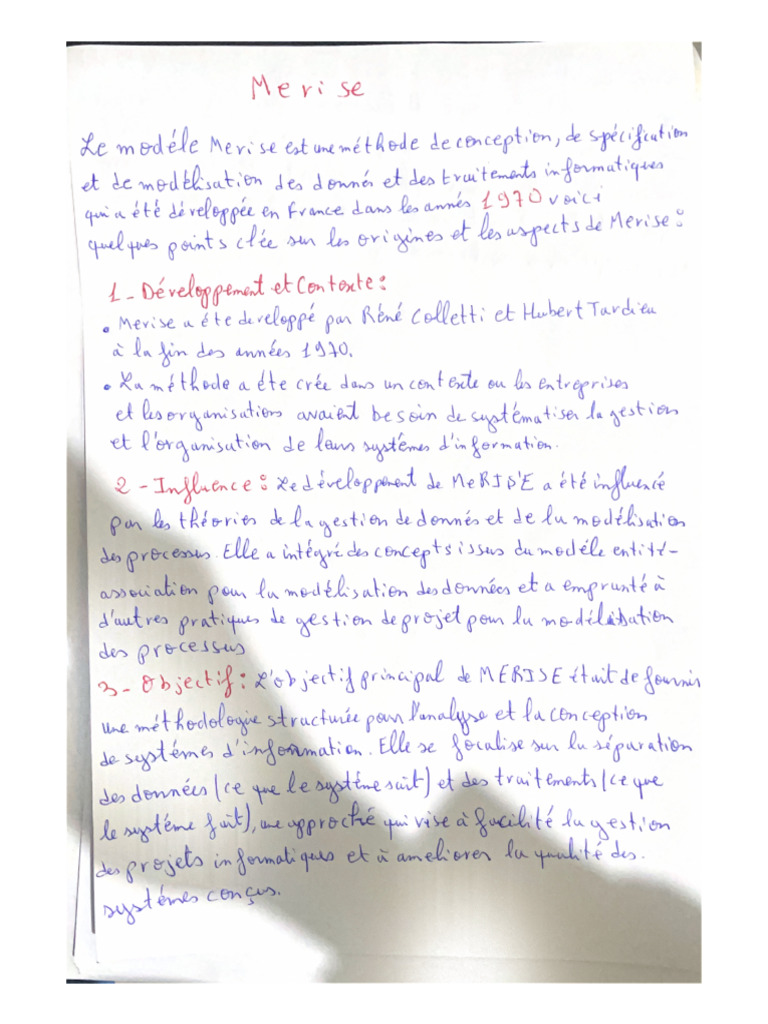 Merise
Le modéle Merise est une méthode de conception, de spécification
et de modélisation des donnés et des traitements informatiques
qui a été développée en France dans les annés 1970 voici
quelques points clée sur les origines et les aspects de Merise :
1 - Développement et Contexte :
• Merise a éte developpé par Réné Colletti et Hubert Tardieu
à la fin des années 1970.
• La méthode a éte crée dans un contexte ou les entreprises
et les organisations avaient besoin de systématiser la gestion
et l'organisation de leurs systémes d'information.
2 - Influence : Le développement de MeRISE a été influencé
par les théories de la gestion de donnés et de la modélisation
des processus. Elle a intégré des concepts issus du modéle entité-
association pour la modélisation des données et a emprunté à
d'autres pratiques de gestion de projet pour la modélisation
des processus
3 - Objectif : L'objectif principal de MERISE était de fournir
une méthodologie structurée pour l'analyse et la conception
de systémes d'information. Elle se focalise sur la séparation
des données (ce que le systéme sait) et des traitements (ce que
le systéme fait), une approche qui vise à facilité la gestion
des projets informatiques et à ameliorer la qualité des.
systémes conçus.